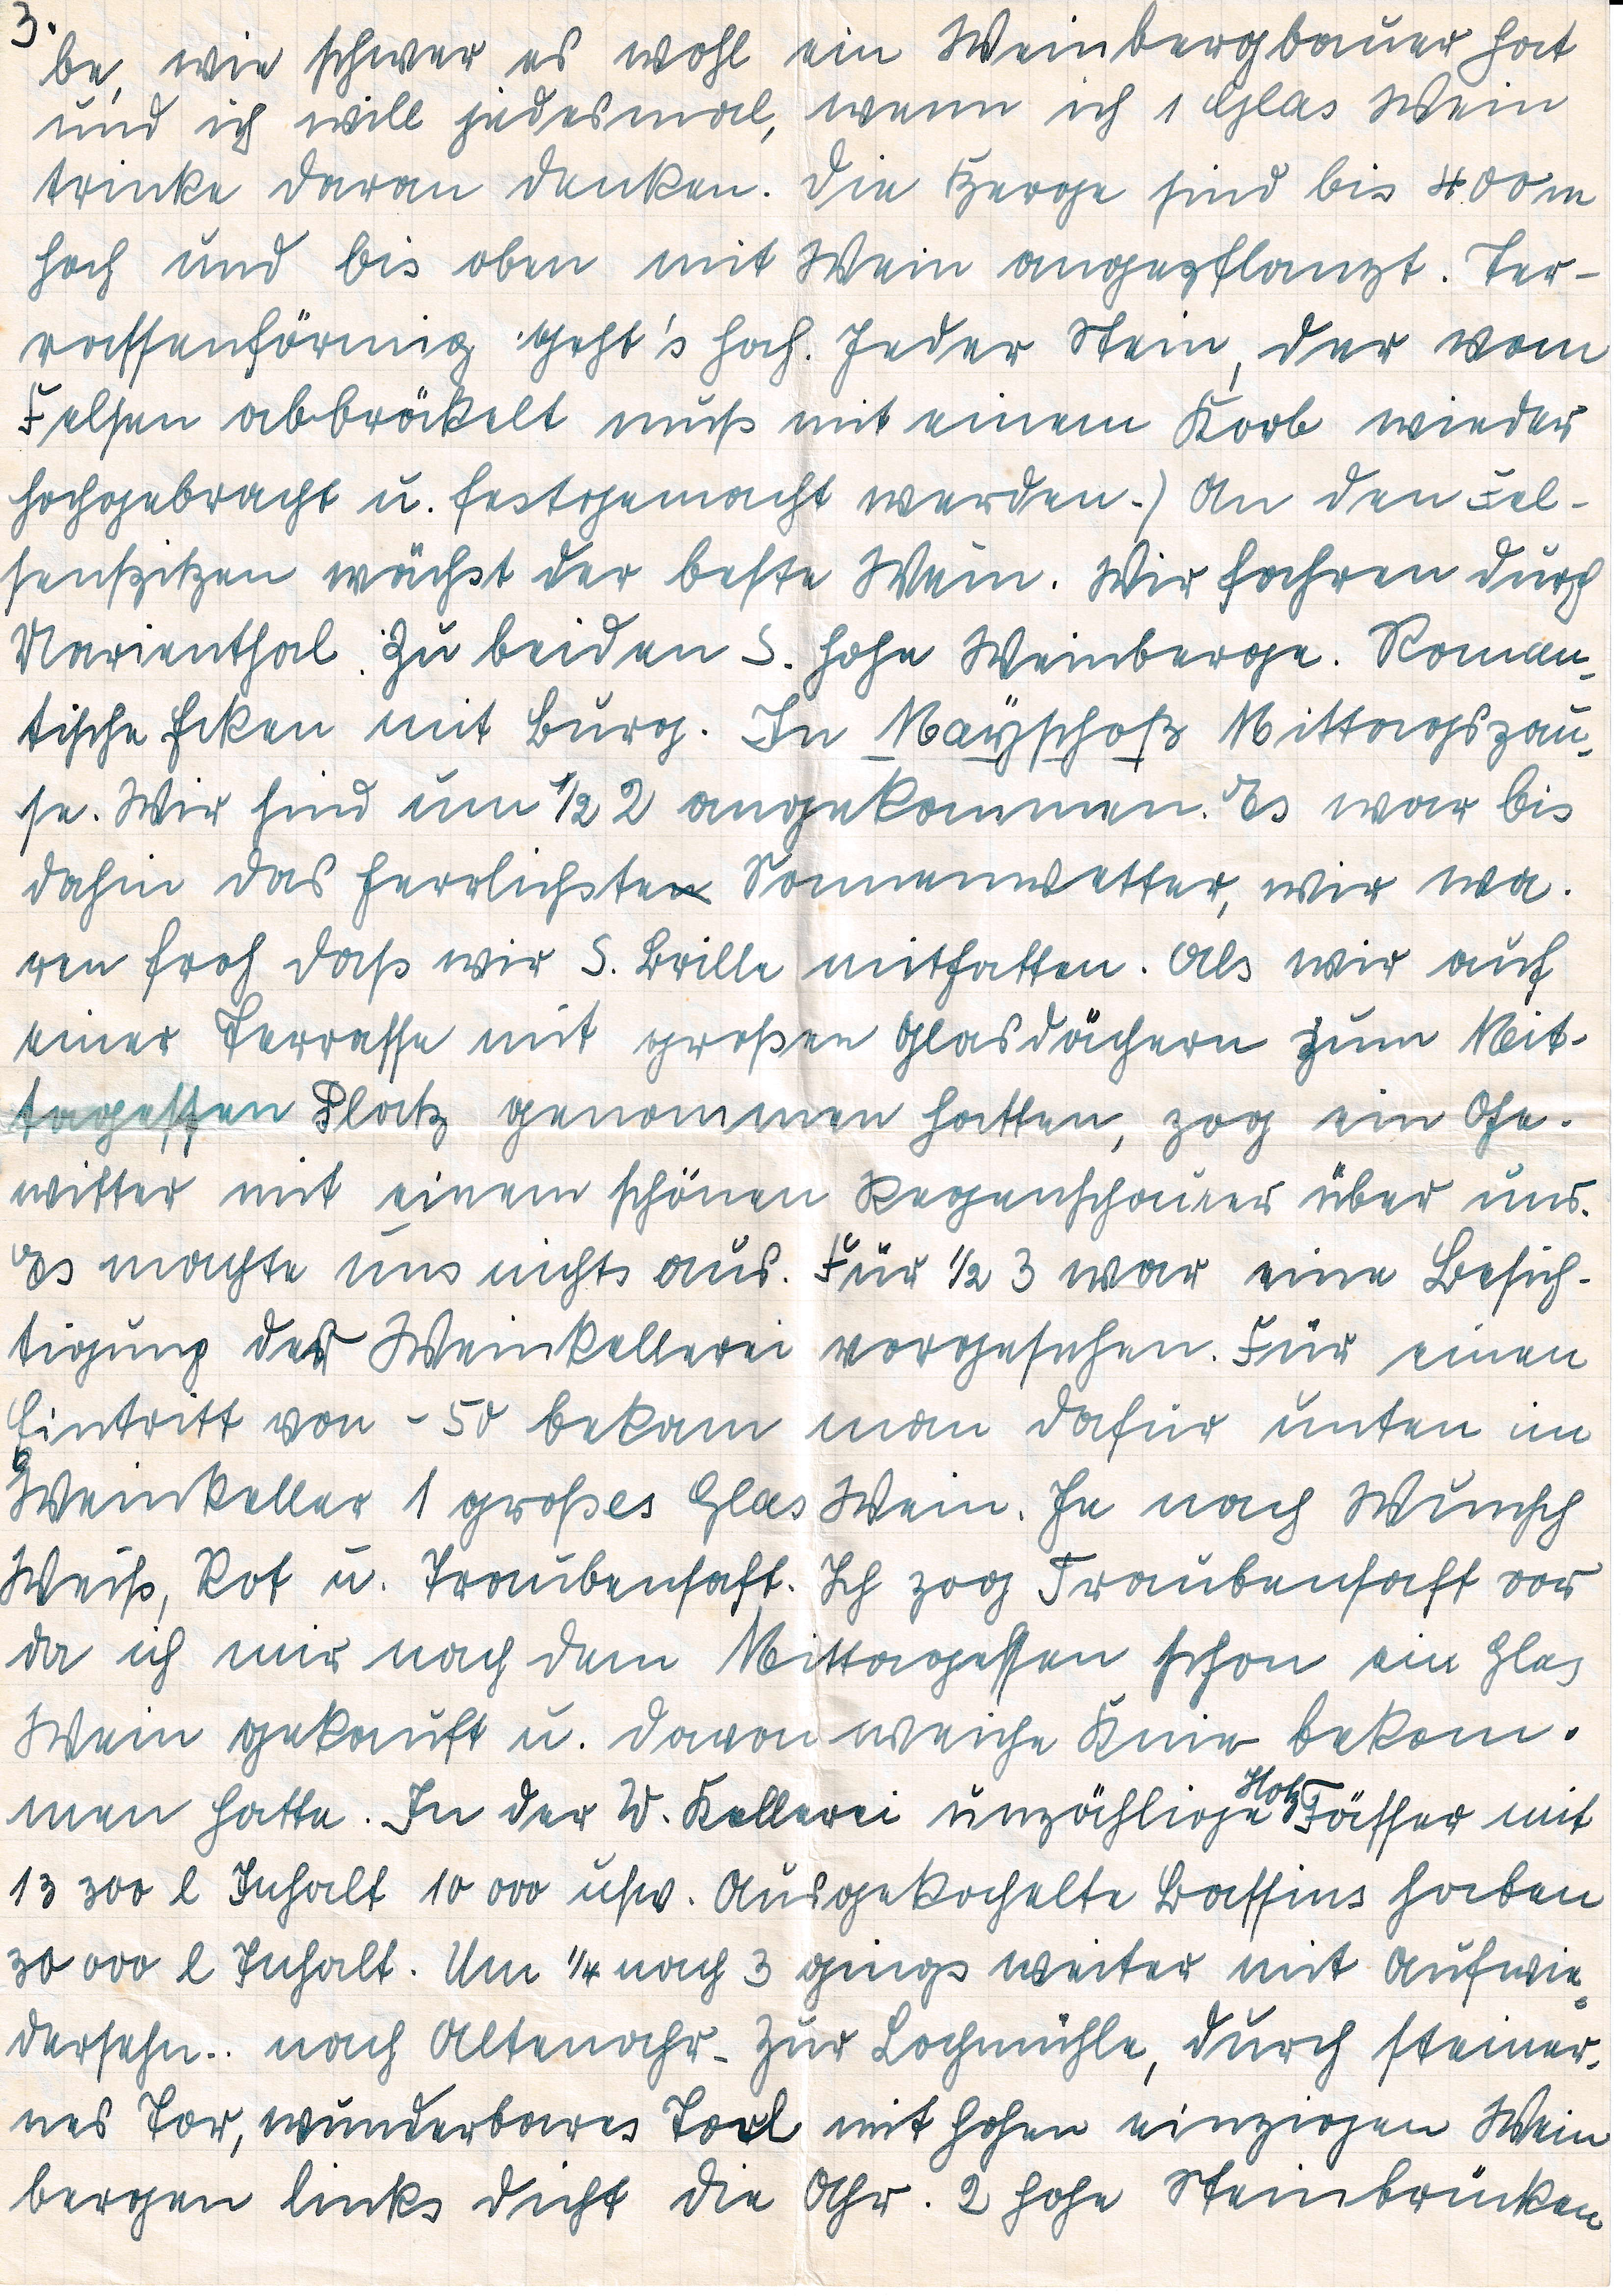 3.
be, wie schwer es wohl ein Weinbergbauer hat
und ich will jedesmal, wenn ich 1 Glas Wein
trinke daran denken. Die Berge sind bis 400 m
hoch und bis oben mit Wein angepflanzt. Ter-
rassenförmig geht's hoch. Jeder Stein, der vom
Felsen abbröckelt muß mit einem Korb wieder
hochgebracht u. festgemacht werden.) An den Fel-
senspitzen wächst der beste Wein. Wir fahren durch
Marienthal. Zu beiden S. hohe Weinberge. Roman-
tische Ecken mit Burg. In Mayschoß Mittagspau-
se. Wir sind um 1/2 2 angekommen. Es war bis
dahin das herrlichste Sonnenwetter, wir wa-
ren froh daß wir S. Brille mithatten. Als wir auf
einer Terrasse mit großen Glasdächern zum Mit-
tagessen Platz genommen hatten, zog ein Ge-
witter mit einem schönen Regenschauer über uns.
Es machte uns nichts aus. Für 1/2 3 war eine Besich-
tigung der Weinkellerei vorgesehen. Für einen
Eintritt von -50 bekam man dafür unten im
Weinkeller 1 großes Glas Wein. Je nach Wunsch
Weiß, Rot u. Traubensaft. Ich zog Traubensaft vor
da ich mir nach dem Mittagessen schon ein Glas
Wein gekauft u. davon weiche Knie bekom-
men hatte. In der W. Kellerei unzählige Holz Fässer mit
13 300 l Inhalt 10 000 usw. Ausgekachelte Bassins haben
30 000 l Inhalt. Um 1/4 nach 3 gings weiter mit Aufwie-
dersehn.. nach Altenahr - Zur Lochmühle, durch steiner-
nes Tor, wunderbares Tal mit hohen einzigen Wein
bergen links dicht die Ahr. 2 hohe Steinbrücken